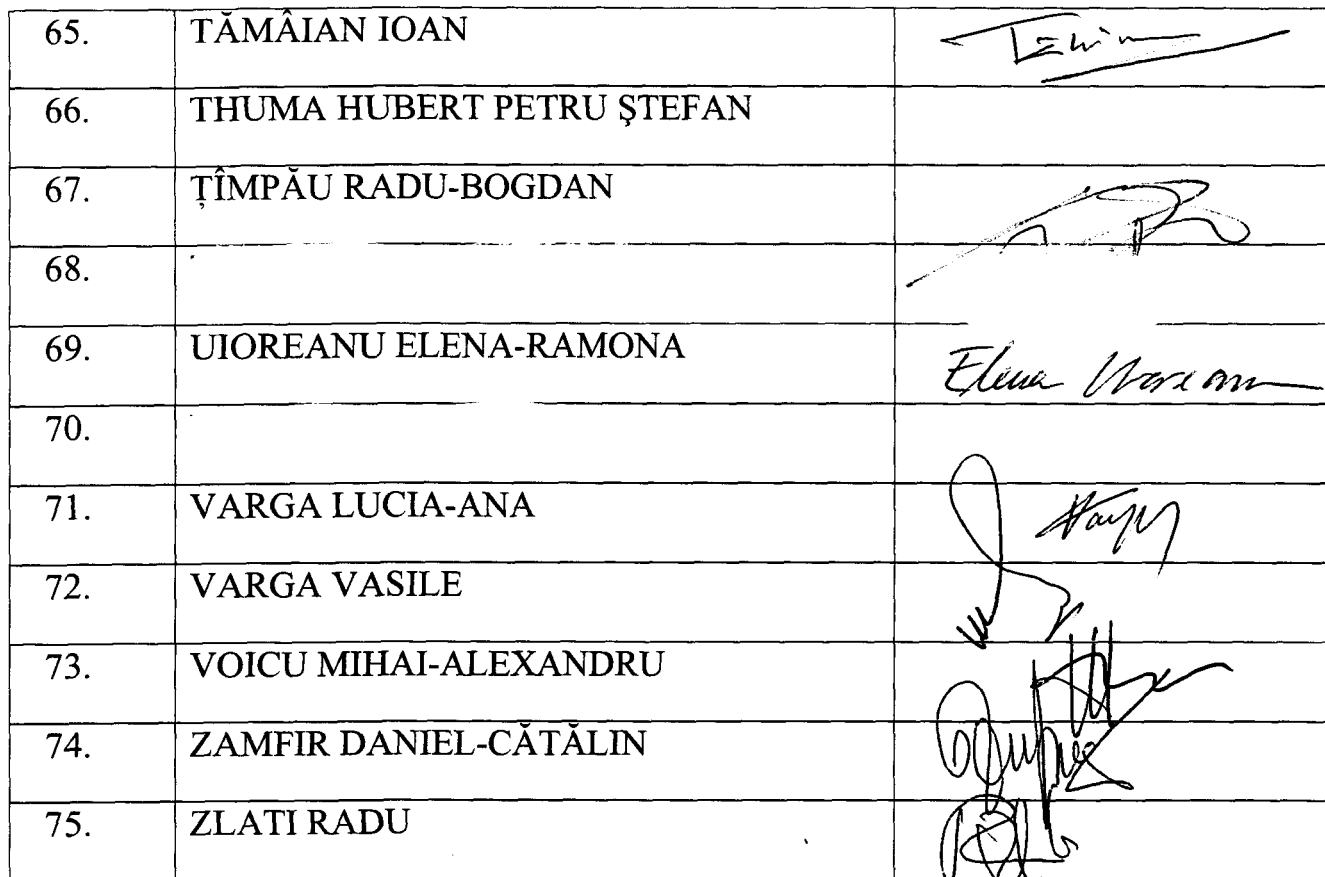 65. TĂMÂIAN IOAN
66. THUMA HUBERT PETRU ŞTEFAN
67. ȚÎMPĂU RADU-BOGDAN
68.
69. UIOREANU ELENA-RAMONA Elena Uioreanu
70.
71. VARGA LUCIA-ANA
72. VARGA VASILE
73. VOICU MIHAI-ALEXANDRU
74. ZAMFIR DANIEL-CĂTĂLIN
75. ZLATI RADU